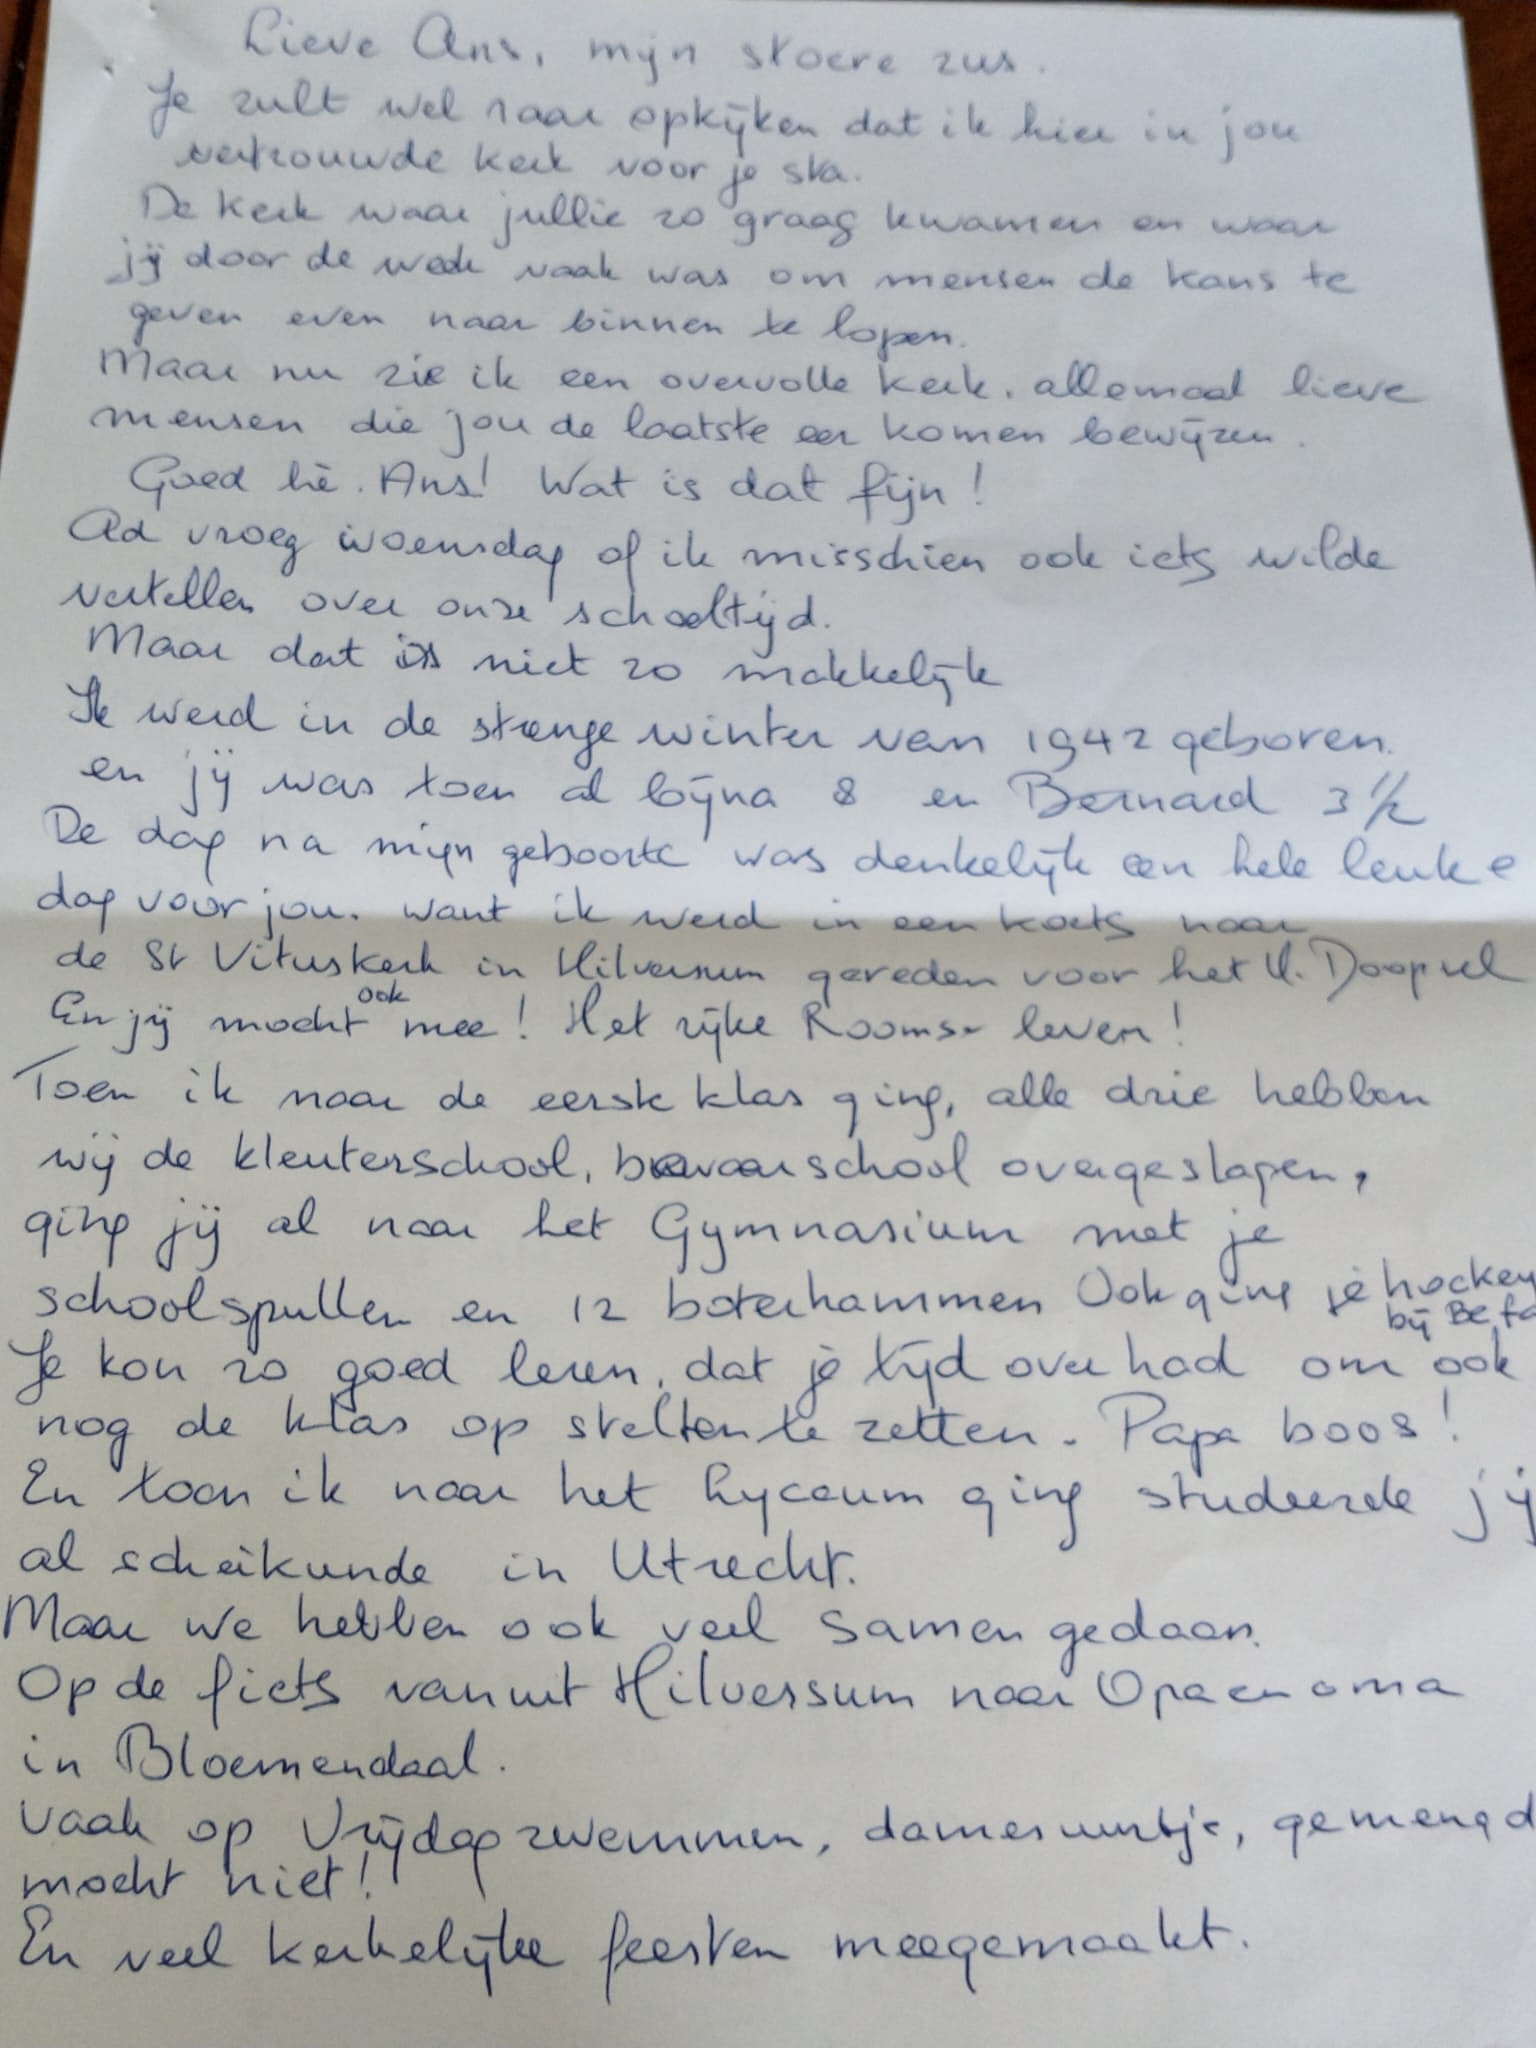 Lieve Ans, mijn stoere zus.
Je zult wel raar opkijken dat ik hier in jou
vertrouwde kerk voor je sta.
De kerk waar jullie zo graag kwamen en waar
jij door de week vaak was om mensen de kans te
geven even naar binnen te lopen.
Maar nu zie ik een overvolle kerk. allemaal lieve
mensen die jou de laatste eer komen bewijzen.
Goed hè. Ans! Wat is dat fijn!
Ad vroeg woensdag of ik misschien ook iets wilde
vertellen over onze schooltijd.
Maar dat is niet zo makkelijk
Ik werd in de strenge winter van 1942 geboren.
en jij was toen al bijna 8 en Bernard 3 1/2
De dag na mijn geboorte was denkelijk een hele leuke
dag voor jou. want ik werd in een koets naar
de St Vituskerk in Hilversum gereden voor het H. Doopsel
En jij mocht ook mee! Het rijke Roomse leven!
Toen ik naar de eerste klas ging, alle drie hebben
wij de kleuterschool, bewaarschool overgeslagen,
ging jij al naar het Gymnasium met je
schoolspullen en 12 boterhammen Ook ging je hockey
bij Be Fa
Je kon zo goed leren, dat je tijd over had om ook
nog de klas op stelten te zetten. Papa boos!
En toen ik naar het Lyceum ging studeerde jij
al scheikunde in Utrecht.
Maar we hebben ook veel samen gedaan.
Op de fiets vanuit Hilversum naar Opa en oma
in Bloemendaal.
Vaak op Vrijdag zwemmen, damesuurtje, gemengd
mocht niet!
En veel kerkelijke feesten meegemaakt.